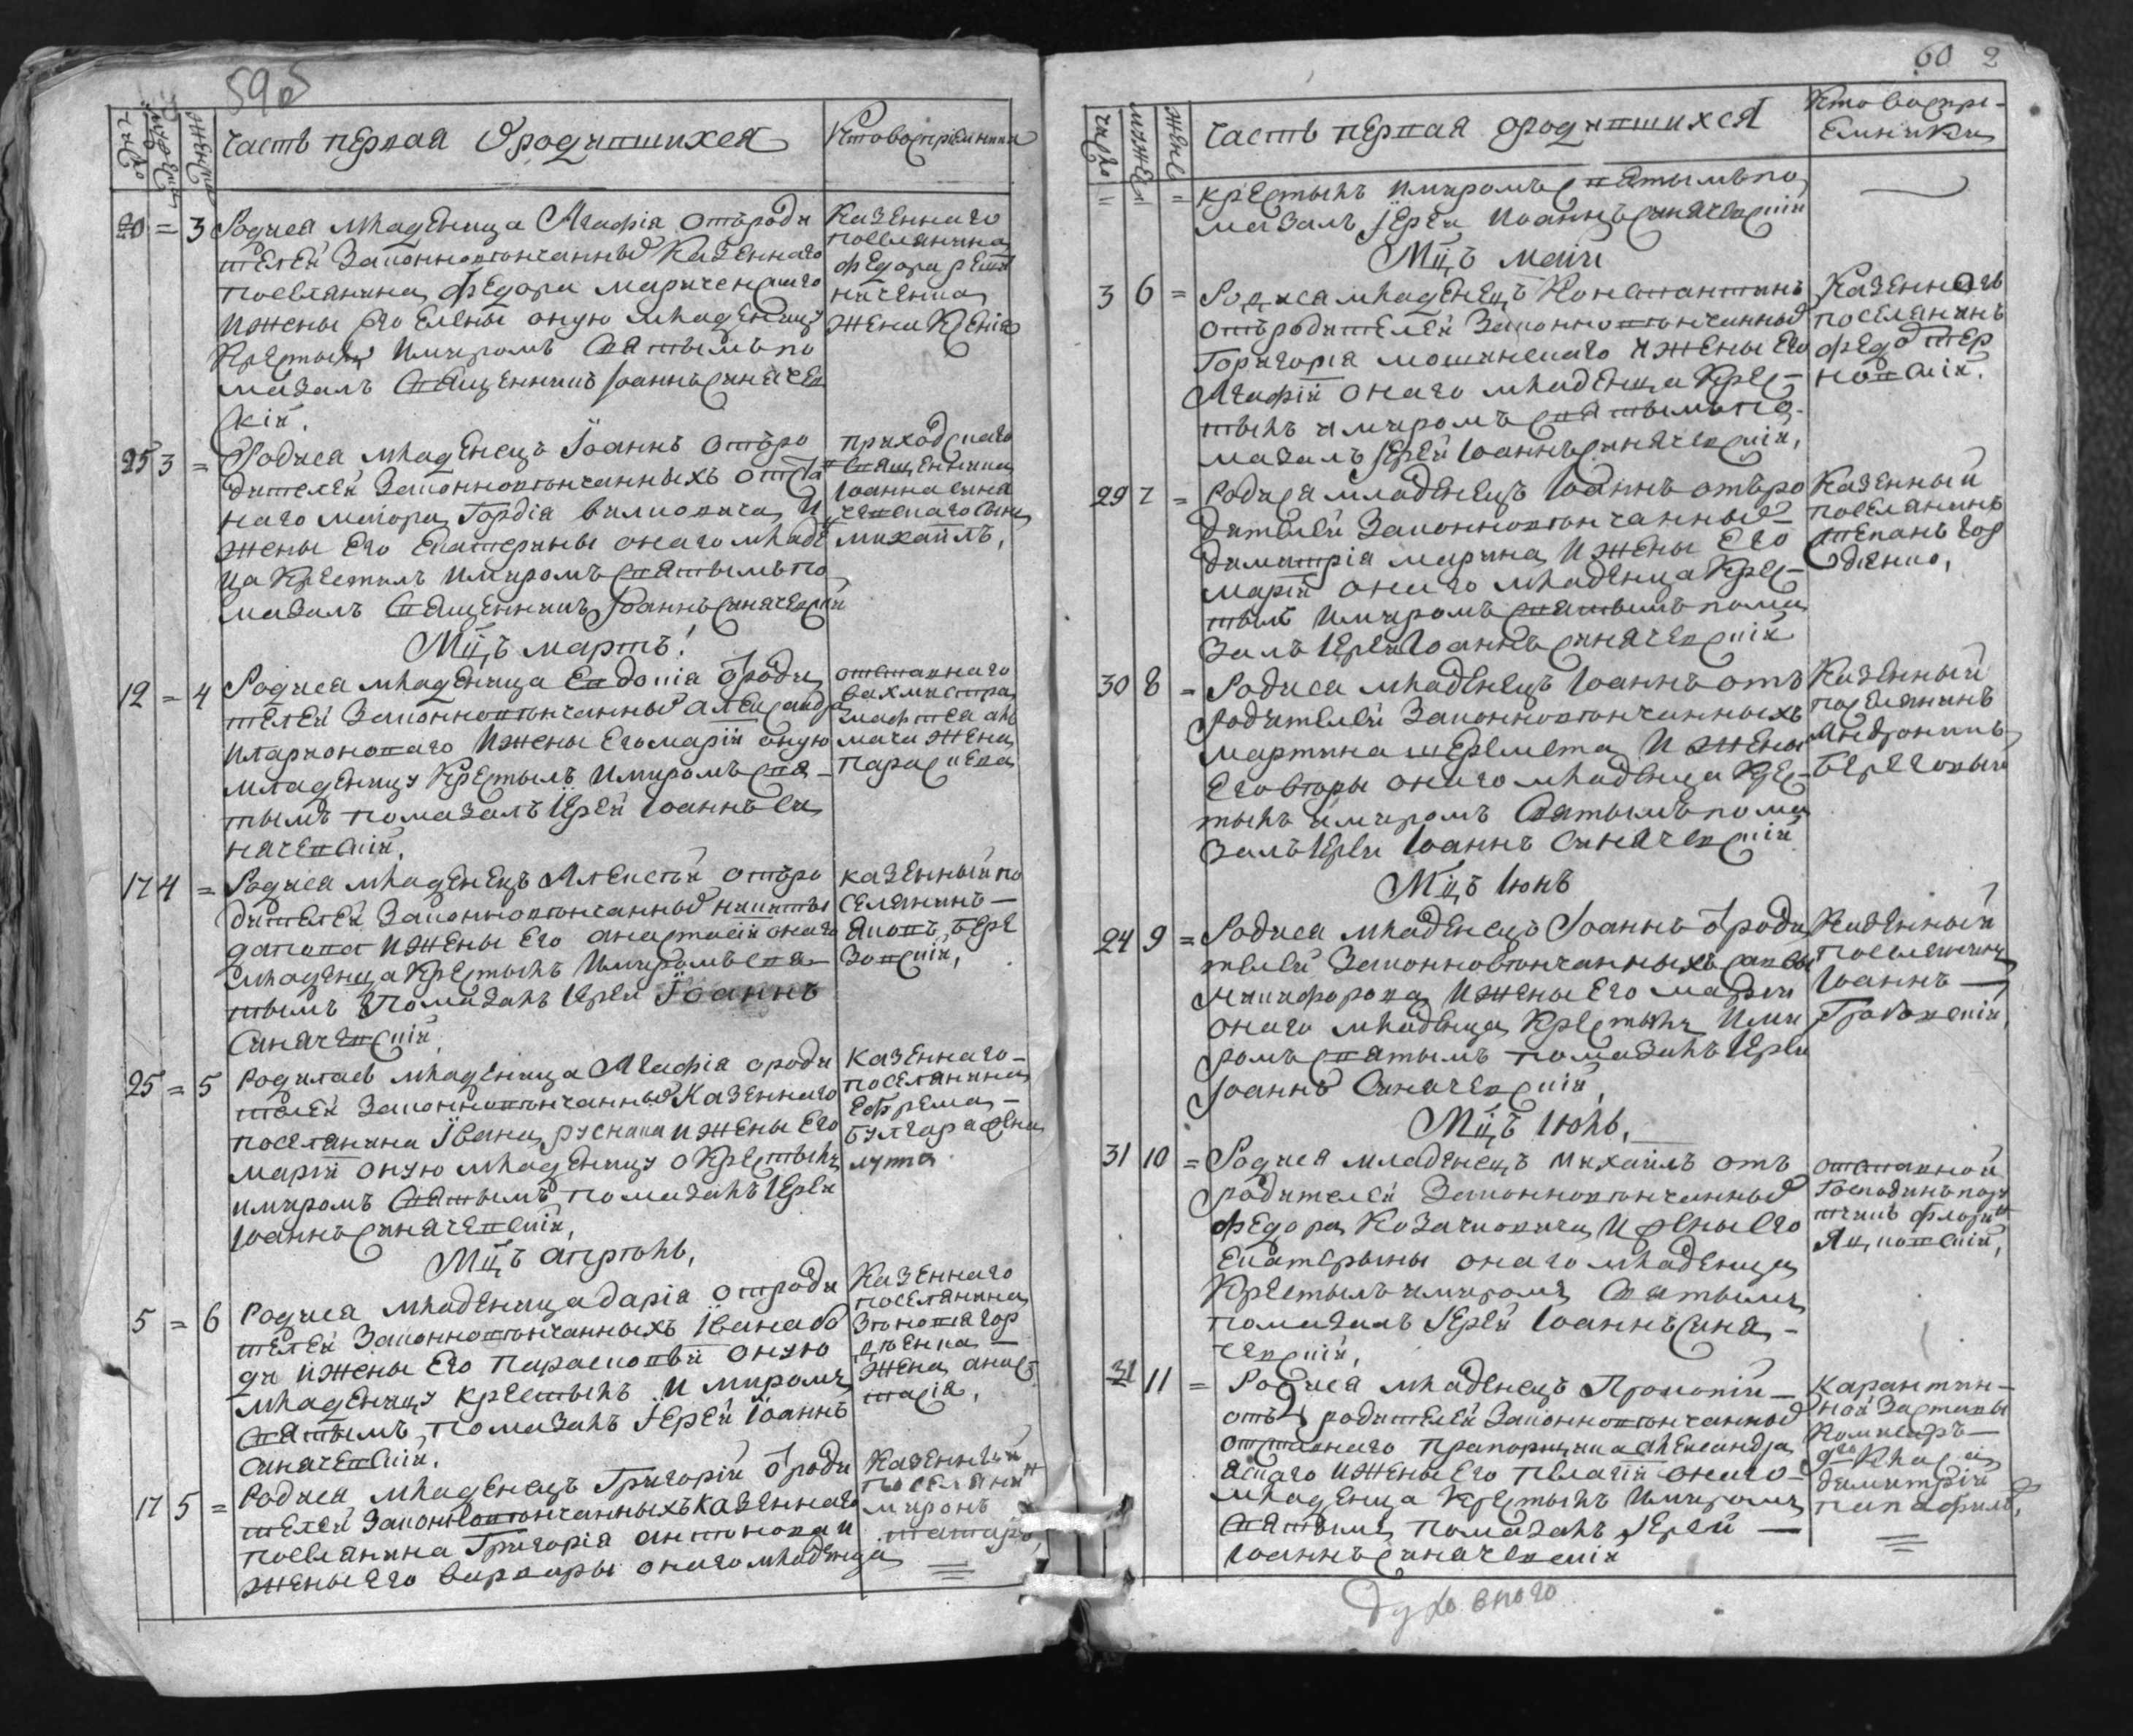 59об
число
мужескъ
женскъ
часть первая Ородившихся
Ктовосприемники
20 = 3 Родися младеница Агафiя отъроди
телей Законновѣнчанныхъ Казеннаго
поселянина федора мариченскаго
ижены его елены оную младеницу
Крестилъ имиромъ святымъ по
мазалъ священникъ Iоаннъ Синячев
скiй.
Казеннаго
поселянина
федора
жена Ксенiя
25 3 = Родися младенецъ Iоаннъ отъро
дителей Законновѣнчанныхъ отста
наго маiора Гордiя И
жены Его Екатерины онагомладе
ца Крестилъ имиромъ святымъ по
мазалъ священникъ Iоаннъ Синячевскiй
приходскаго
священника
Iоанна Сина
чевскаго сынъ
михаилъ,
Мцъ мартъ.
12 = 4 Родися младеница Евдокiя ѿроди
телей Законновѣнчанныхъ александра
иларионоваго ижены Его марiи оную
младеницу Крестилъ имиромъ свя-
тымъ помазалъ Iерей Iоаннъ Си
начевскiй.
отставнаго
вахмистра
матвея
жена
параскева
17 4 = Родися младенецъ Алексѣй отъро
дителей Законновѣнчанныхъ никиты
ижены Его анастасiи онаго
младенца Крестилъ имиромъ свя-
тымъ помазалъ Iерей Iоаннъ
Синячевскiй,
казенный по
селянинъ —
Яковъ бере
зовскiй,
25 = 5 Родилась младеница Агафiя ѿроди
телей Законновѣнчанныхъ Казеннаго
поселянина Iвана руснака ижены Его
марiи оную младеницу окрестилъ
имиромъ святымъ помазалъ Iерей
Iоаннъ Синячевскiй,
Казеннаго —
поселянина
Ефрема —
булгара жена
Мцъ апрѣль,
5 = 6 Родися младеница дарiя отроди
телей Законновѣнчанныхъ Iвана
ижены Его парасковiи оную
младеницу крестилъ И миромъ
святымъ помазалъ Iерей Iоаннъ
синячевскiй.
Казеннаго
поселянина
Зѣновiя гор
дѣенка —
жена анас
тасiя,
17 5 = Родися младенецъ Григорiй ѿроди
телей Законновѣнчанныхъ казеннаго
поселянина Григорiя антонова и
жены его варвары онаго младенца
Казенный
поселянинъ
миронъ
татаръ,
60 2
число
мужескъ
женскъ
часть первая ородившихся
Кто воспри-
емники
= крестилъ имиромъ святымъ по
мазалъ Iерей Iоаннъ синячевскiй
Мцъ маiй
3 6 = Родися младенецъ Константинъ
отъродителей Законновѣнчанныхъ
Григорiя мошинскаго ижены его
Агафiи онаго младенца Крес-
тилъ имиромъ святымъ по-
мазалъ Iерей Iоаннъ синячевскiй,
Казенный
поселянинъ
федоръ тер
новскiй.
29 7 = Родися младенецъ Iоаннъ отъро
дителей Законновѣнчанныхъ —
димитрiя марина ижены Его
марiи онаго младенца Крес-
тилъ имиромъ святымъ пома
залъ Iерей Iоаннъ синячевскiй
Казенный
поселянинъ
степанъ гор
дiенко,
30 8 = Родися младенецъ Iоаннъ отъ
родителей Законновѣнчанныхъ
мартина шеремета И жены
Его онаго младенца Крес-
тилъ имиромъ Святымъ пома
залъ Iерей Iоаннъ Синячевскiй
Казенный
поселянинъ
Андроникъ
береговый
Мцъ Iюнь
24 9 = Родися младенецъ Iоаннъ ѿроди
телей Законновѣнчанныхъ савы
Никифорова ижены Его марiи
онаго младенца Крестилъ ими
ромъ святымъ помазалъ Iерей
Iоаннъ Синячевскiй,
Казенный
поселянинъ
Iоаннъ —
Грабовскiй
Мцъ Iюль,
31 10 = Родися младенецъ михаилъ отъ
родителей Законновѣнчанныхъ
федора Козачковича ижены его
Екатерины онаго младенца
Крестилъ имиромъ Святымъ
помазалъ Iерей Iоаннъ Синя-
чевскiй,
отставной
Господинъ пору
тчикъ
31 11 = Родися младенецъ Прокопiй —
отъ родителей Законновѣнчанныхъ
отставнаго прапорщика Александра
ижены Его пелагiи онаго —
младенца Крестилъ имиромъ
святымъ помазалъ Iерей —
Iоаннъ Синячевскiй
Карантин-
ной заставы
Комисаръ —
димитрiй
Духовного